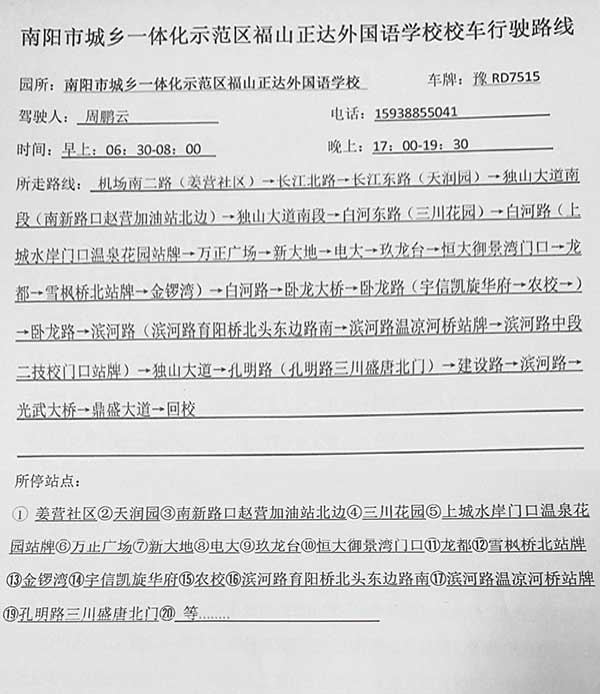 南阳市城乡一体化示范区福山正达外国语学校校车行驶路线
园所：南阳市城乡一体化示范区福山正达外国语学校 车牌：豫RD7515
驾驶人：周鹏云 电话：15938855041
时间：早上：06：30-08：00 晚上：17：00-19：30
所走路线：机场南二路（姜营社区）→长江北路→长江东路（天润园）→独山大道南
段（南新路口赵营加油站北边）→独山大道南段→白河东路（三川花园）→白河路（上
城水岸门口温泉花园站牌→万正广场→新大地→电大→玖龙台→恒大御景湾门口→龙
都→雪枫桥北站牌→金锣湾）→白河路→卧龙大桥→卧龙路（宇信凯旋华府→农校→）
→卧龙路→滨河路（滨河路育阳桥北头东边路南→滨河路温凉河桥站牌→滨河路中段
二技校门口站牌）→独山大道→孔明路（孔明路三川盛唐北门）→建设路→滨河路→
光武大桥→鼎盛大道→回校
所停站点：
① 姜营社区②天润园③南新路口赵营加油站北边④三川花园⑤上城水岸门口温泉花
园站牌⑥万正广场⑦新大地⑧电大⑨玖龙台⑩恒大御景湾门口⑪龙都⑫雪枫桥北站牌
⑬金锣湾⑭宇信凯旋华府⑮农校⑯滨河路育阳桥北头东边路南⑰滨河路温凉河桥站牌
⑲孔明路三川盛唐北门⑳ 等........